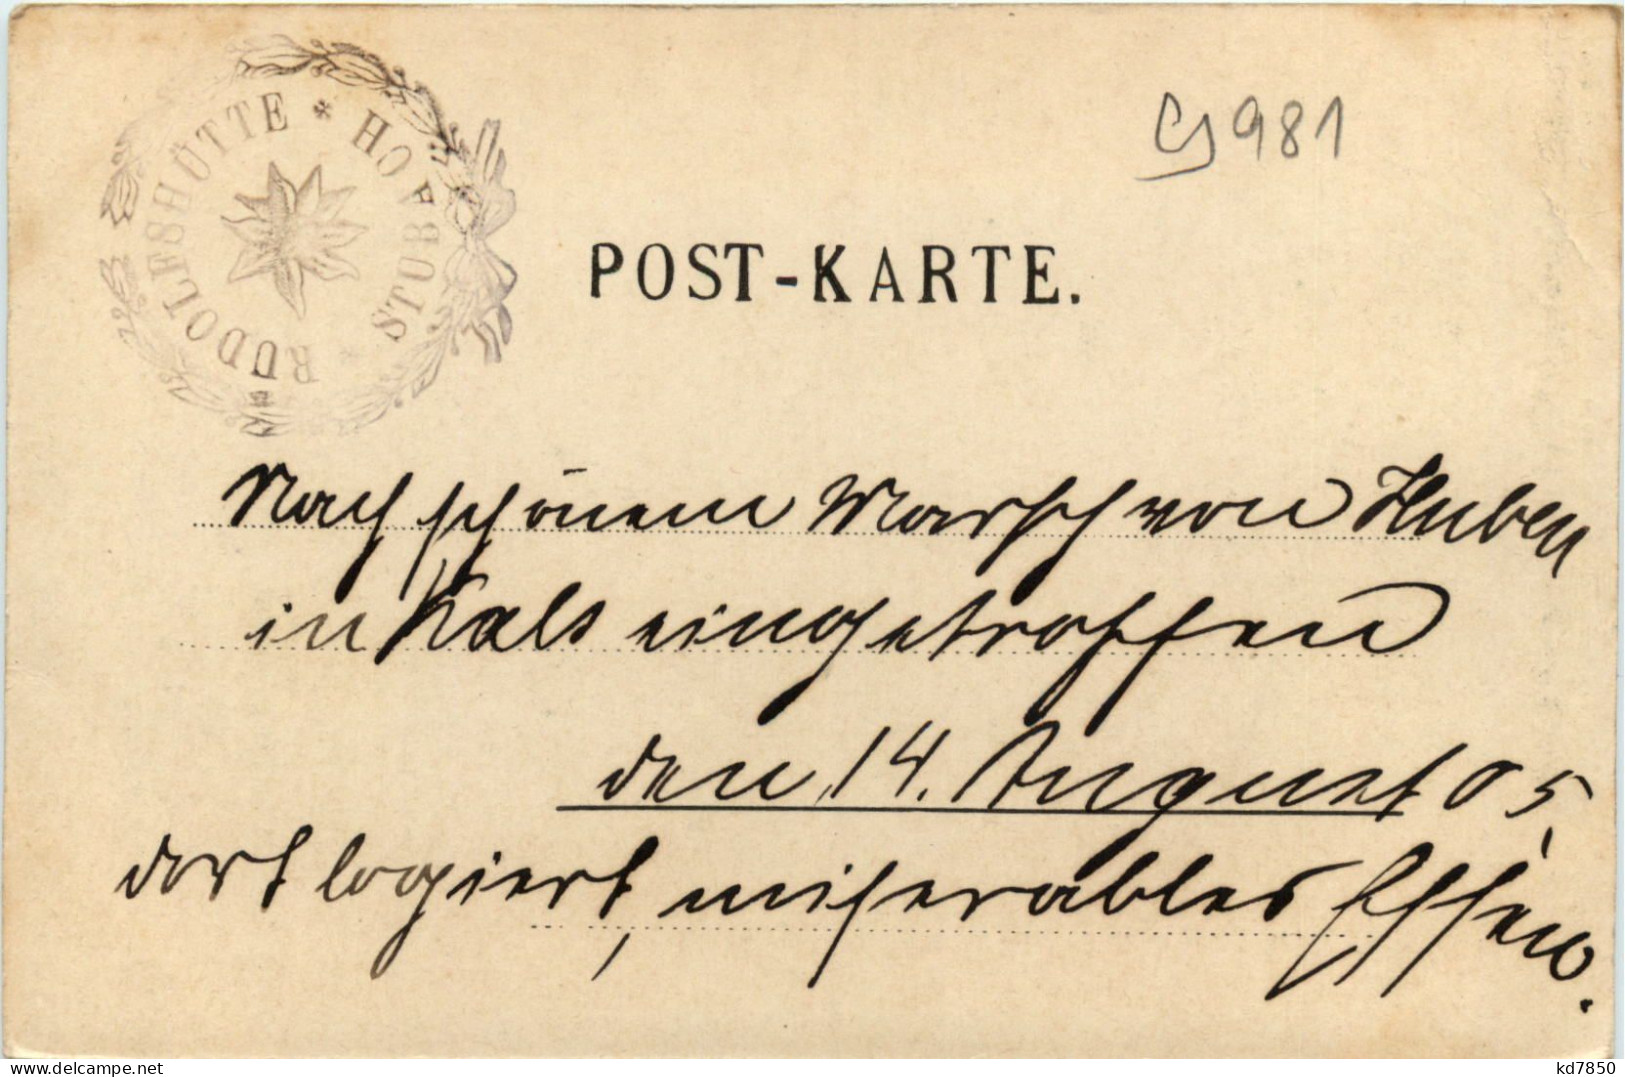 RUDOLFSHÜTTE * HOFSTUBE *
CJ981
POST-KARTE.
Nach schönem Marsch von Huben
in Kals eingetroffen
den 14. August 05
dort logiert, miserables Essen.
delcampe.net
kd7850